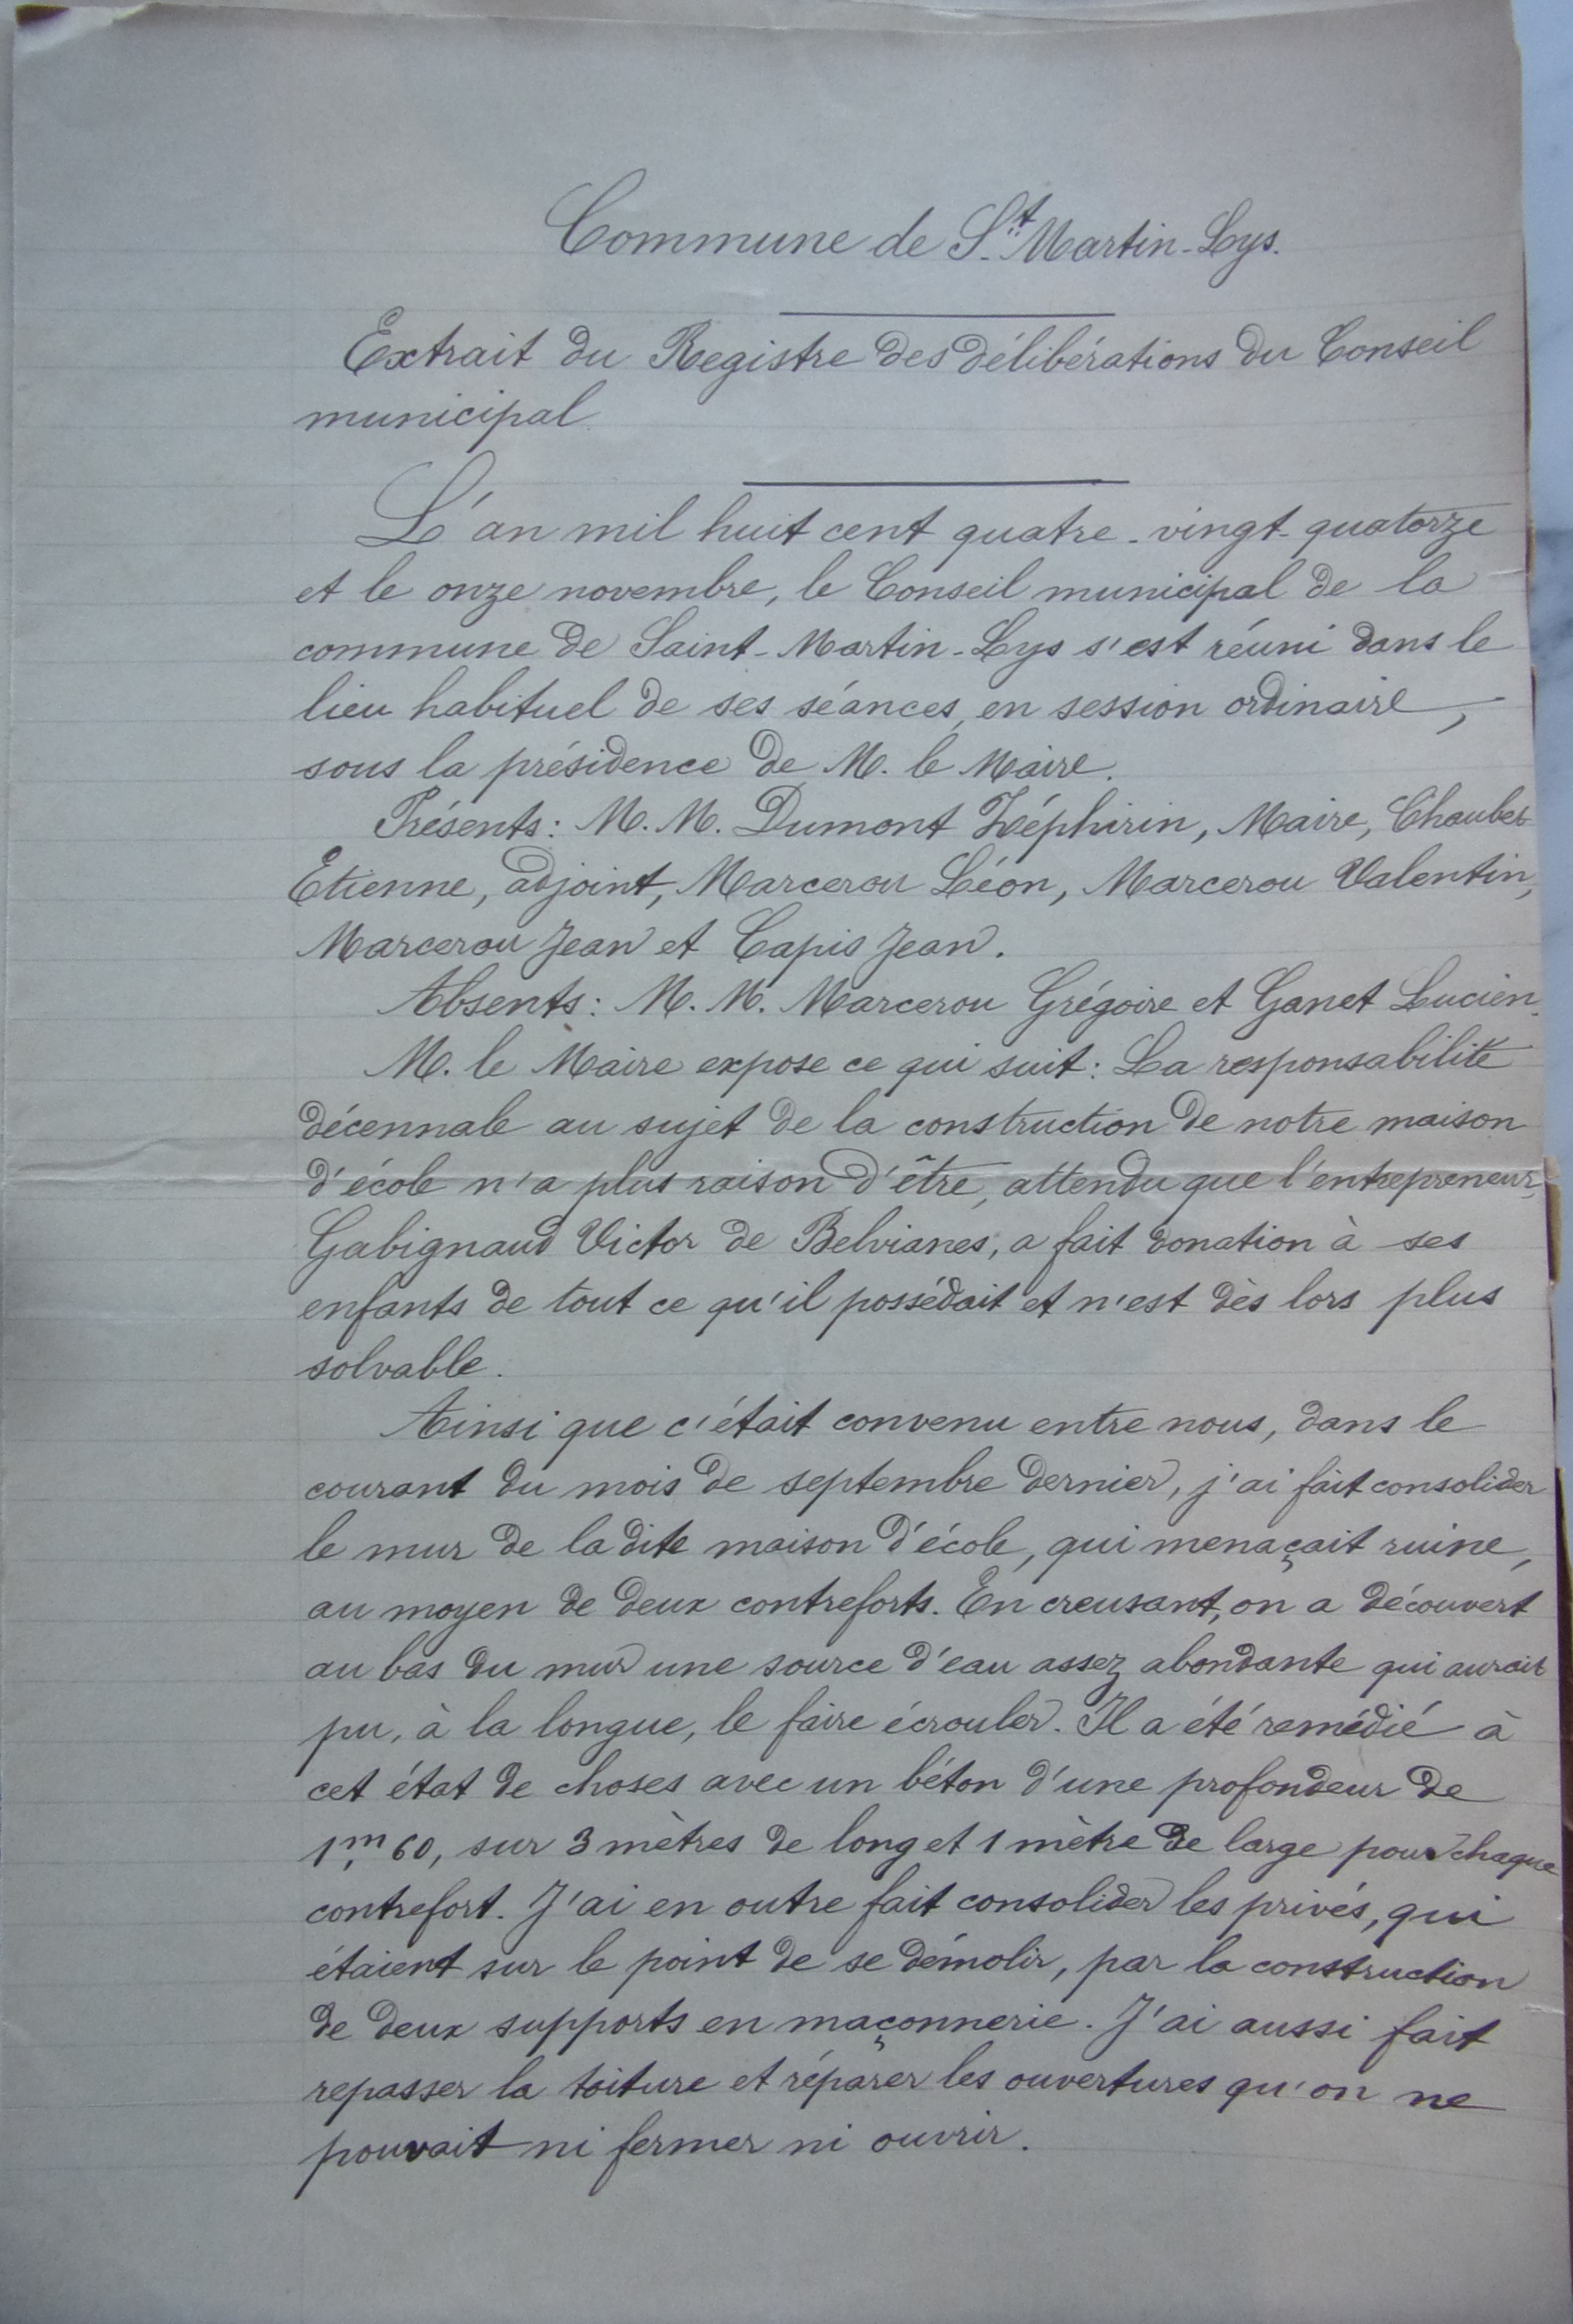 Commune de St Martin-Lys.
Extrait du Registre des délibérations du Conseil
municipal
L'an mil huit cent quatre-vingt-quatorze
et le onze novembre, le Conseil municipal de la
commune de Saint-Martin-Lys s'est réuni dans le
lieu habituel de ses séances, en session ordinaire,
sous la présidence de M. le Maire.
Présents: M.M. Dumont Zéphirin, Maire, Chaubet
Etienne, adjoint, Marcerou Léon, Marcerou Valentin,
Marcerou Jean et Capis Jean.
Absents: M.M. Marcerou Grégoire et Ganet Lucien.
M. le Maire expose ce qui suit: La responsabilité
décennale au sujet de la construction de notre maison
d'école n'a plus raison d'être, attendu que l'entrepreneur,
Gabignaud Victor de Belvianes, a fait donation à ses
enfants de tout ce qu'il possédait et n'est dès lors plus
solvable.
Ainsi que c'était convenu entre nous, dans le
courant du mois de septembre dernier, j'ai fait consolider
le mur de la dite maison d'école, qui menaçait ruine,
au moyen de deux contreforts. En creusant, on a découvert
au bas du mur une source d'eau assez abondante qui aurait
pu, à la longue, le faire écrouler. Il a été remédié à
cet état de choses avec un béton d'une profondeur de
1m,60, sur 3 mètres de long et 1 mètre de large pour chaque
contrefort. J'ai en outre fait consolider les privés, qui
étaient sur le point de se démolir, par la construction
de deux supports en maçonnerie. J'ai aussi fait
repasser la toiture et réparer les ouvertures qu'on ne
pouvait ni fermer ni ouvrir.